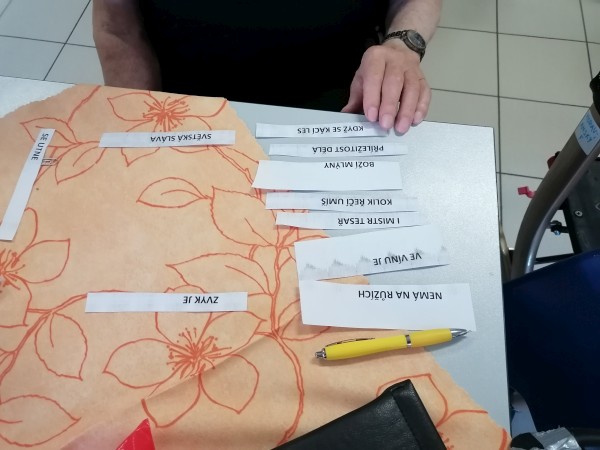 KDYŽ SE KÁCÍ LES
PŘÍLEŽITOST DĚLÁ
BOŽÍ MLÝNY
KOLIK ŘEČÍ UMÍŠ
I MISTR TESAŘ
VE VÍNU JE
NEMÁ NA RŮŽÍCH
SVĚTSKÁ SLÁVA
ZVYK JE
SE UTNE